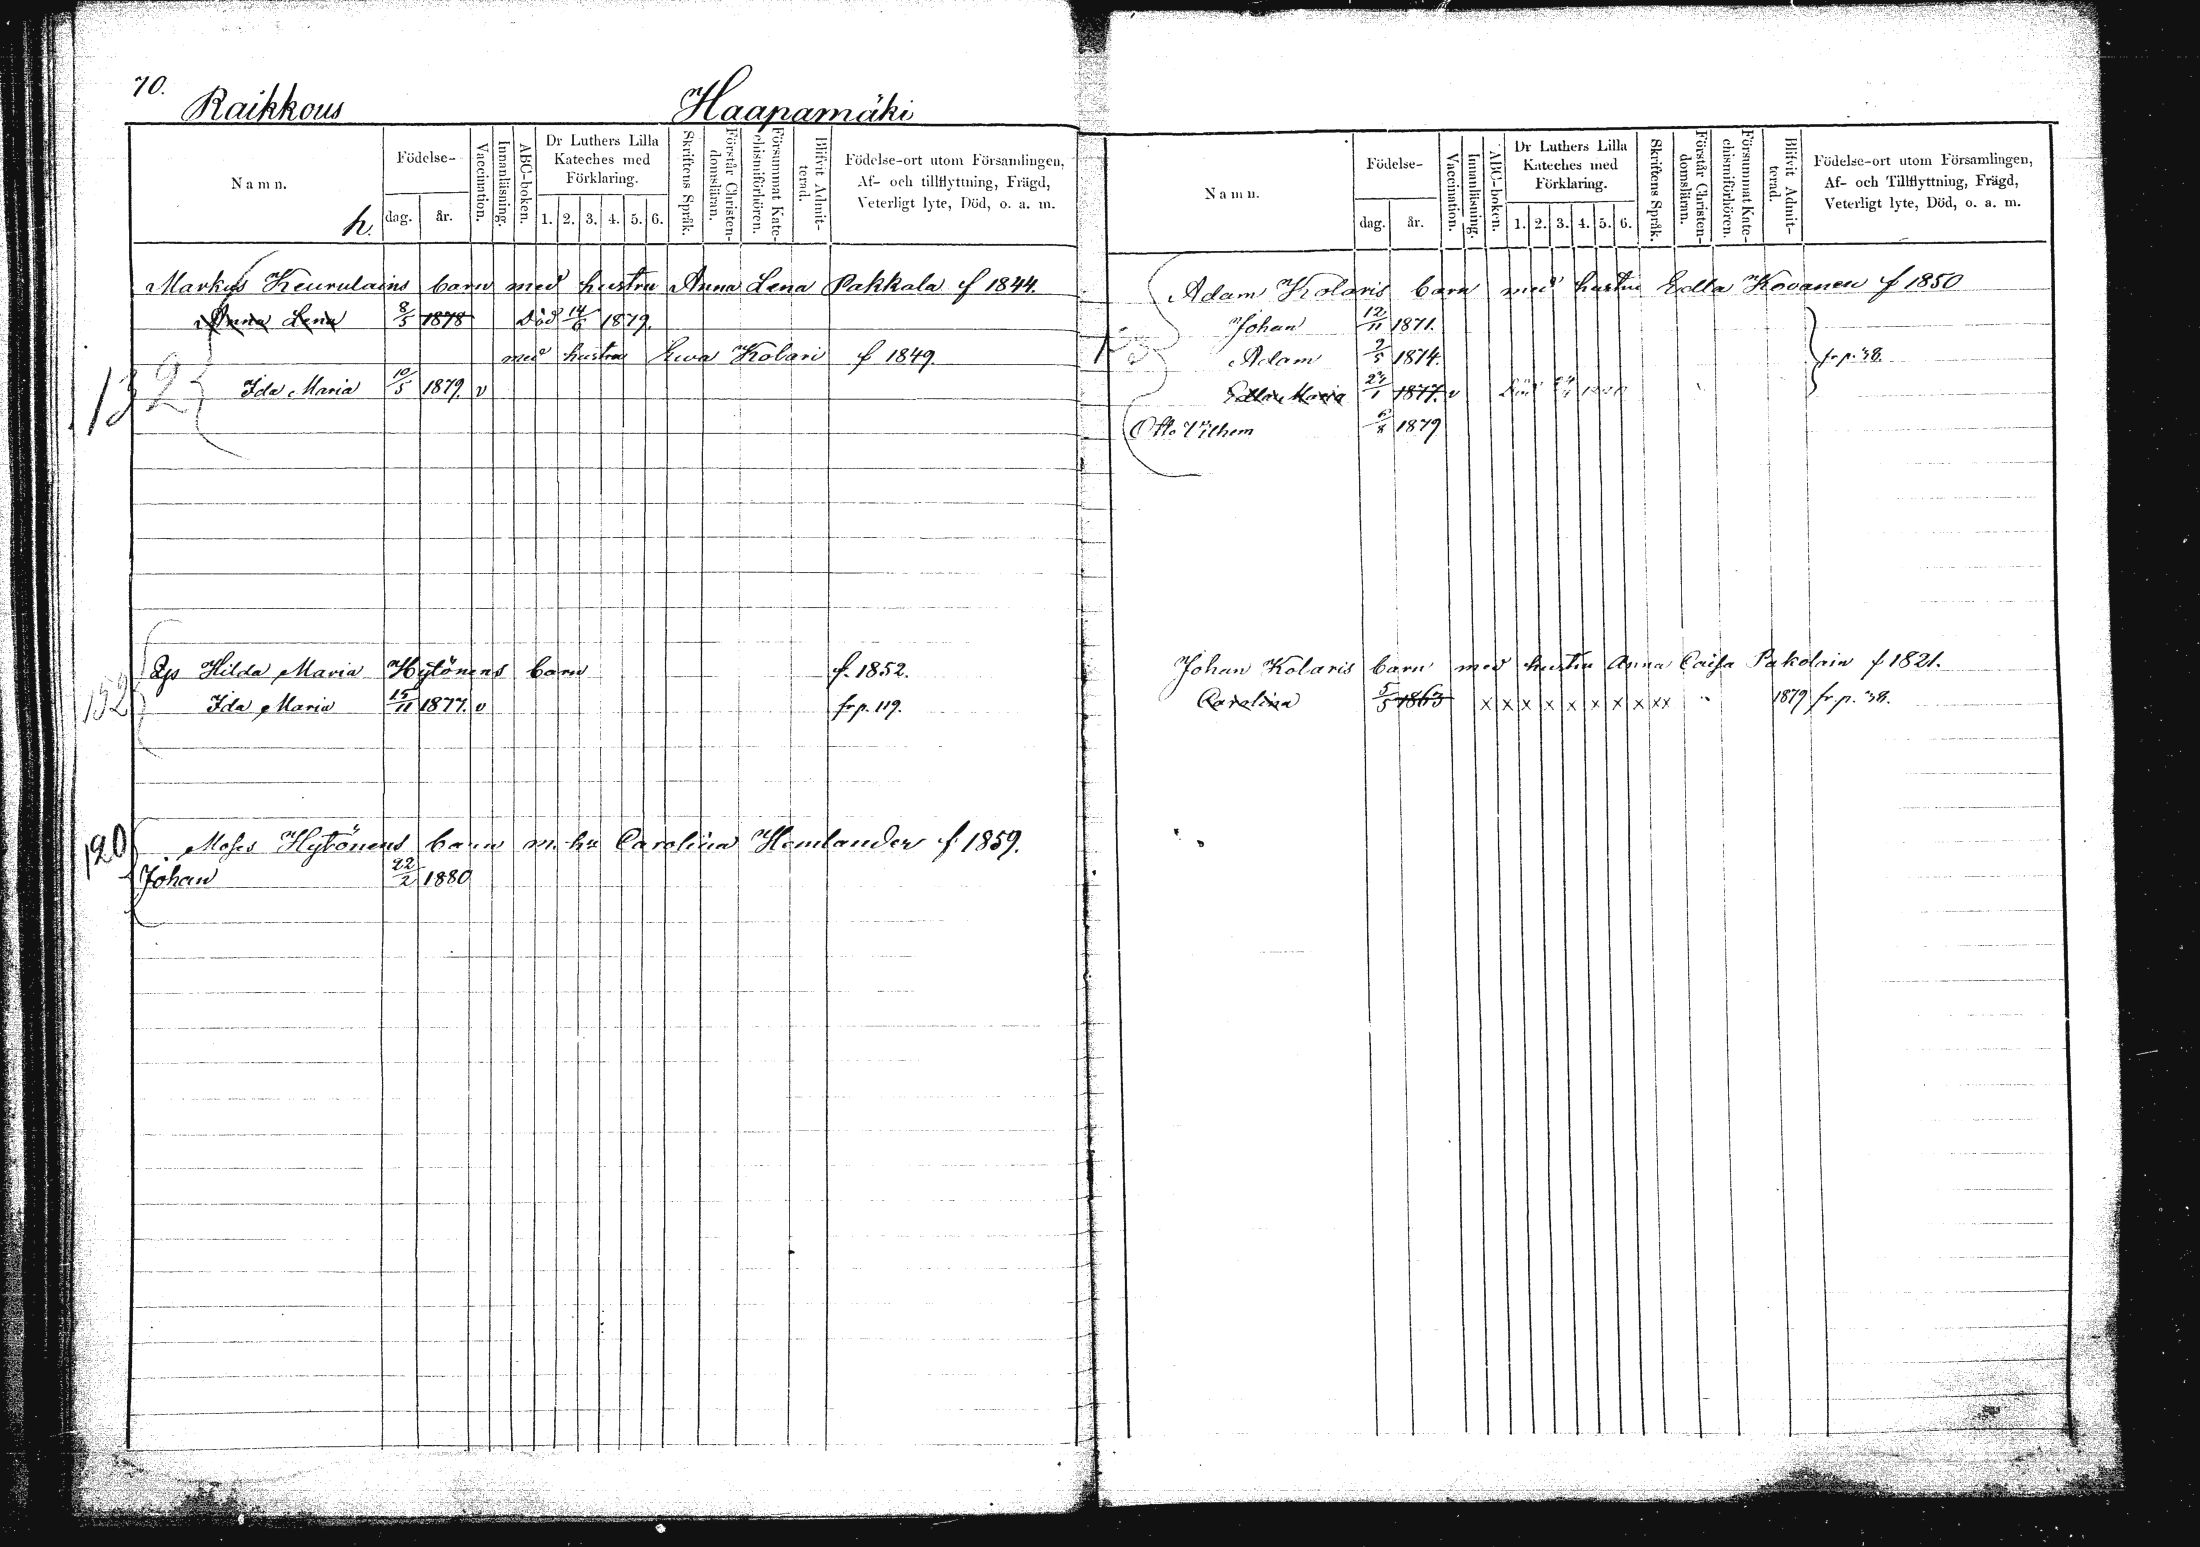 70.
Raikkous Haapamäki
Namn.
h.
Födelse-
dag. år.
Vaccination.
Innanläsning.
ABC-boken.
Dr Luthers Lilla Kateches med Förklaring.
1. 2. 3. 4. 5. 6.
Skriftens Språk.
Förstår Christendomsläran.
Försummat Katechismiförhören.
Blifvit Admitterad.
Födelse-ort utom Församlingen,
Af- och tillflyttning, Frägd,
Veterligt lyte, Död, o. a. m.
Markus Keurulains barn med hustru Anna Lena Pakkala f 1844.
Anna Lena 8/5 1878 Död 14/6 1879.
med hustru Ewa Kolari f 1849
132
Ida Maria 10/5 1879. v
152
Qp Hilda Maria Hytönens barn f. 1852.
Ida Maria 15/11 1877. v fr p. 119.
120
Moses Hytönens barn m. hu Carolina Hemlander f. 1859.
Johan 22/2 1880
Namn.
Födelse-
dag. år.
Vaccination.
Innanläsning.
ABC-boken.
Dr Luthers Lilla
Kateches med
Förklaring.
1. 2. 3. 4. 5. 6.
Skriftens Språk.
Förstår Christendomsläran.
Försummat Katechismiförhören.
Blifvit Admitterad.
Födelse-ort utom Församlingen,
Af- och Tillflyttning, Frägd,
Veterligt lyte, Död, o. a. m.
Adam Kolaris barn med hustru Edla Kovanen f 1850
Johan 12/11 1871.
Adam 2/5 1874. fr p. 38.
Edla Maria 1877. v Död
Otto Vilhem 6/8 1879
Johan Kolaris barn med hustru Anna Caisa Pakolain f 1821.
Carolina 5/5 1863 x x x x x x x x xx 1879 fr p. 38.